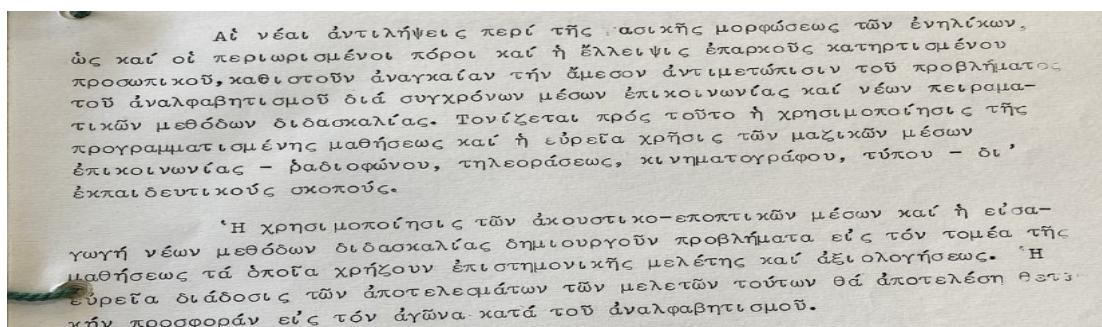 Αἱ νέαι ἀντιλήψεις περί τῆς ασικῆς μορφώσεως τῶν ἐνηλίκων,
ὡς καί οἱ περιωρισμένοι πόροι καί ἡ ἔλλειψις ἐπαρκοῦς κατηρτισμένου
προσωπικοῦ, καθιστοῦν ἀναγκαίαν τήν ἄμεσον ἀντιμετώπισιν τοῦ προβλήματος
τοῦ ἀναλφαβητισμοῦ διά συγχρόνων μέσων ἐπικοινωνίας καί νέων πειραμα-
τικῶν μεθόδων διδασκαλίας. Τονίζεται πρός τοῦτο ἡ χρησιμοποίησις τῆς
προγραμματισμένης μαθήσεως καί ἡ εὐρεῖα χρῆσις τῶν μαζικῶν μέσων
ἐπικοινωνίας - ῥαδιοφώνου, τηλεοράσεως, κινηματογράφου, τύπου - δι'
ἐκπαιδευτικούς σκοπούς.
Ἡ χρησιμοποίησις τῶν ἀκουστικο-εποπτικῶν μέσων καί ἡ εἰσα-
γωγή νέων μεθόδων διδασκαλίας δημιουργοῦν προβλήματα εἰς τόν τομέα τῆς
μαθήσεως τά ὁποῖα χρήζουν ἐπιστημονικῆς μελέτης καί ἀξιολογήσεως. Ἡ
εὐρεῖα διάδοσις τῶν ἀποτελεσμάτων τῶν μελετῶν τούτων θά ἀποτελέση θετι
κήν προσφοράν εἰς τόν ἀγῶνα κατά τοῦ ἀναλφαβητισμοῦ.